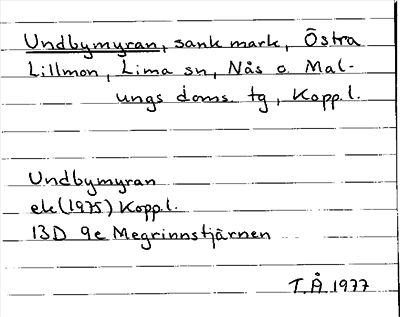 Undbymyran, sank mark, Östra
Lillmon, Lima sn, Nås o. Mal-
ungs doms. tg, Kopp.l.
Undbymyran
ek(1975) Kopp.l.
13D 9e Megrinnstjärnen
T.Å. 1977